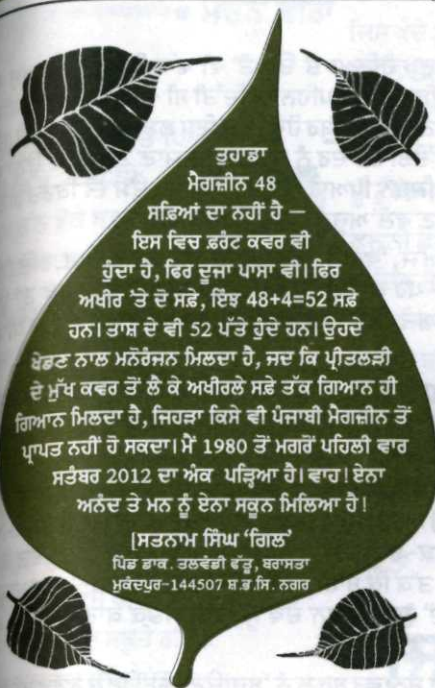 ਤੁਹਾਡਾ
ਮੈਗਜ਼ੀਨ 48
ਸਫ਼ਿਆਂ ਦਾ ਨਹੀਂ ਹੈ —
ਇਸ ਵਿਚ ਫ਼ਰੰਟ ਕਵਰ ਵੀ
ਹੁੰਦਾ ਹੈ, ਫਿਰ ਦੂਜਾ ਪਾਸਾ ਵੀ। ਫਿਰ
ਅਖੀਰ 'ਤੇ ਦੋ ਸਫ਼ੇ, ਇੰਝ 48+4=52 ਸਫ਼ੇ
ਹਨ। ਤਾਸ਼ ਦੇ ਵੀ 52 ਪੱਤੇ ਹੁੰਦੇ ਹਨ। ਉਹਦੇ
ਖੇਡਣ ਨਾਲ ਮਨੋਰੰਜਨ ਮਿਲਦਾ ਹੈ, ਜਦ ਕਿ ਪ੍ਰੀਤਲੜੀ
ਦੇ ਮੁੱਖ ਕਵਰ ਤੋਂ ਲੈ ਕੇ ਅਖੀਰਲੇ ਸਫ਼ੇ ਤੱਕ ਗਿਆਨ ਹੀ
ਗਿਆਨ ਮਿਲਦਾ ਹੈ, ਜਿਹੜਾ ਕਿਸੇ ਵੀ ਪੰਜਾਬੀ ਮੈਗਜ਼ੀਨ ਤੋਂ
ਪ੍ਰਾਪਤ ਨਹੀਂ ਹੋ ਸਕਦਾ। ਮੈਂ 1980 ਤੋਂ ਮਗਰੋਂ ਪਹਿਲੀ ਵਾਰ
ਸਤੰਬਰ 2012 ਦਾ ਅੰਕ ਪੜ੍ਹਿਆ ਹੈ। ਵਾਹ! ਏਨਾ
ਅਨੰਦ ਤੇ ਮਨ ਨੂੰ ਏਨਾ ਸਕੂਨ ਮਿਲਿਆ ਹੈ!
[ਸਤਨਾਮ ਸਿੰਘ 'ਗਿਲ'
ਪਿੰਡ ਡਾਕ. ਤਲਵੰਡੀ ਫੱਤੂ, ਬਰਾਸਤਾ
ਮੁਕੰਦਪੁਰ-144507 ਸ਼.ਭ.ਸਿ. ਨਗਰ